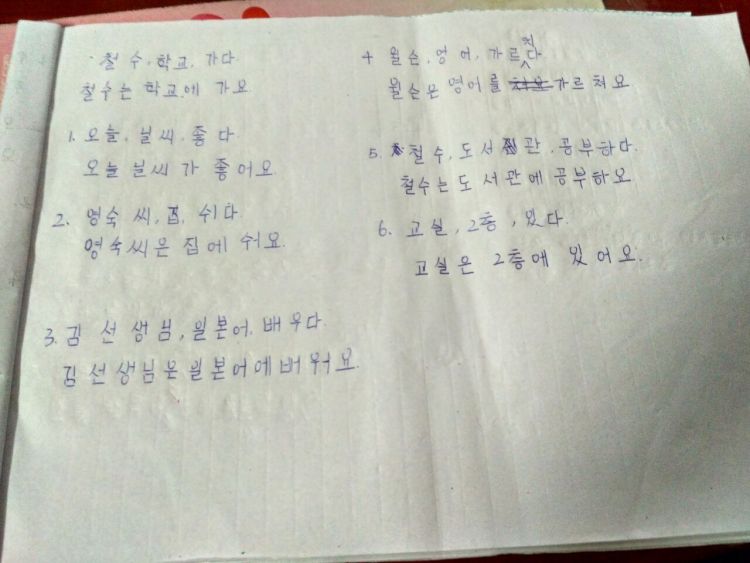 철수, 학교, 가다
철수는 학교에 가요.
1. 오늘, 닐씨, 좋다.
오늘 닐씨가 좋어요.
2. 영숙 씨, 집, 쉬다.
영숙씨은 집에 쉬요.
3. 김 선생님, 일본어, 배우다.
김 선생님은 일본어에 배워요.
4 윌슨, 영어, 가르치다
윌슨은 영어를 가르쳐요
5. 철수, 도서관, 공부하다.
철수는 도서관에 공부하요
6. 교실, 2층, 있다.
교실은 2층에 있어요.